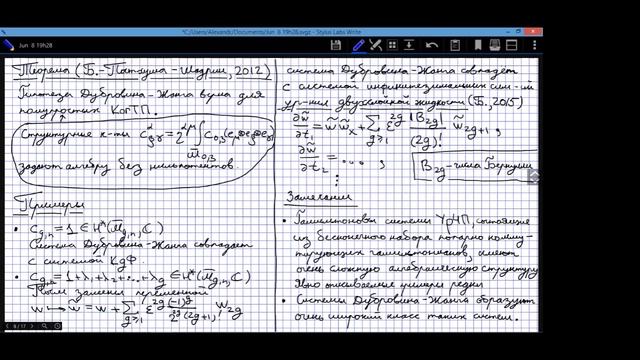 *C:/Users/Alexandr/Documents/Jun 8 19h28.svgz - Stylus Labs Write
Jun 8 19h28
Теорема (Б.-Посгума-Шадрин, 2012)
Гипотеза Дубровина-Жанга верна для
полупростых КогТП.
Структурные к-ты
задают алгебру без нильпотентов.
Примеры
• c_{g,n} = 1 ∈ H*(M̄_{g,n}, ℂ)
Система Дубровина-Жанга совпадает
с системой КдФ.
• c_{g,n} = 1+λ₁+λ₂+...+λ_g ∈ H*(M̄_{g,n}, ℂ)
После замены переменной
w ↦ w̃ = w + Σ_{g≥1} ε^{2g} (-1)^g / 2^{2g}(2g+1)! w_{2g}
система Дубровина-Жанга совпадает
с системой инфинитезимальных сим-ий
ур-ния двухслойной жидкости (Б., 2015)
∂w̃/∂t₁ = w̃ w̃_x + Σ_{g≥1} ε^{2g} |B_{2g}|/(2g)! w̃_{2g+1},
∂w̃/∂t₂ = ...,
⋮
B_{2g} - числа Бернулли
Замечания
• Гамильтоновы системы УрЧП, состоящие
из бесконечного набора попарно комму-
тирующих гамильтонианов, имеют
очень сложную алгебраическую структуру.
Явно описываемые примеры редки.
• Системы Дубровина-Жанга образуют
очень широкий класс таких систем.
8 / 17